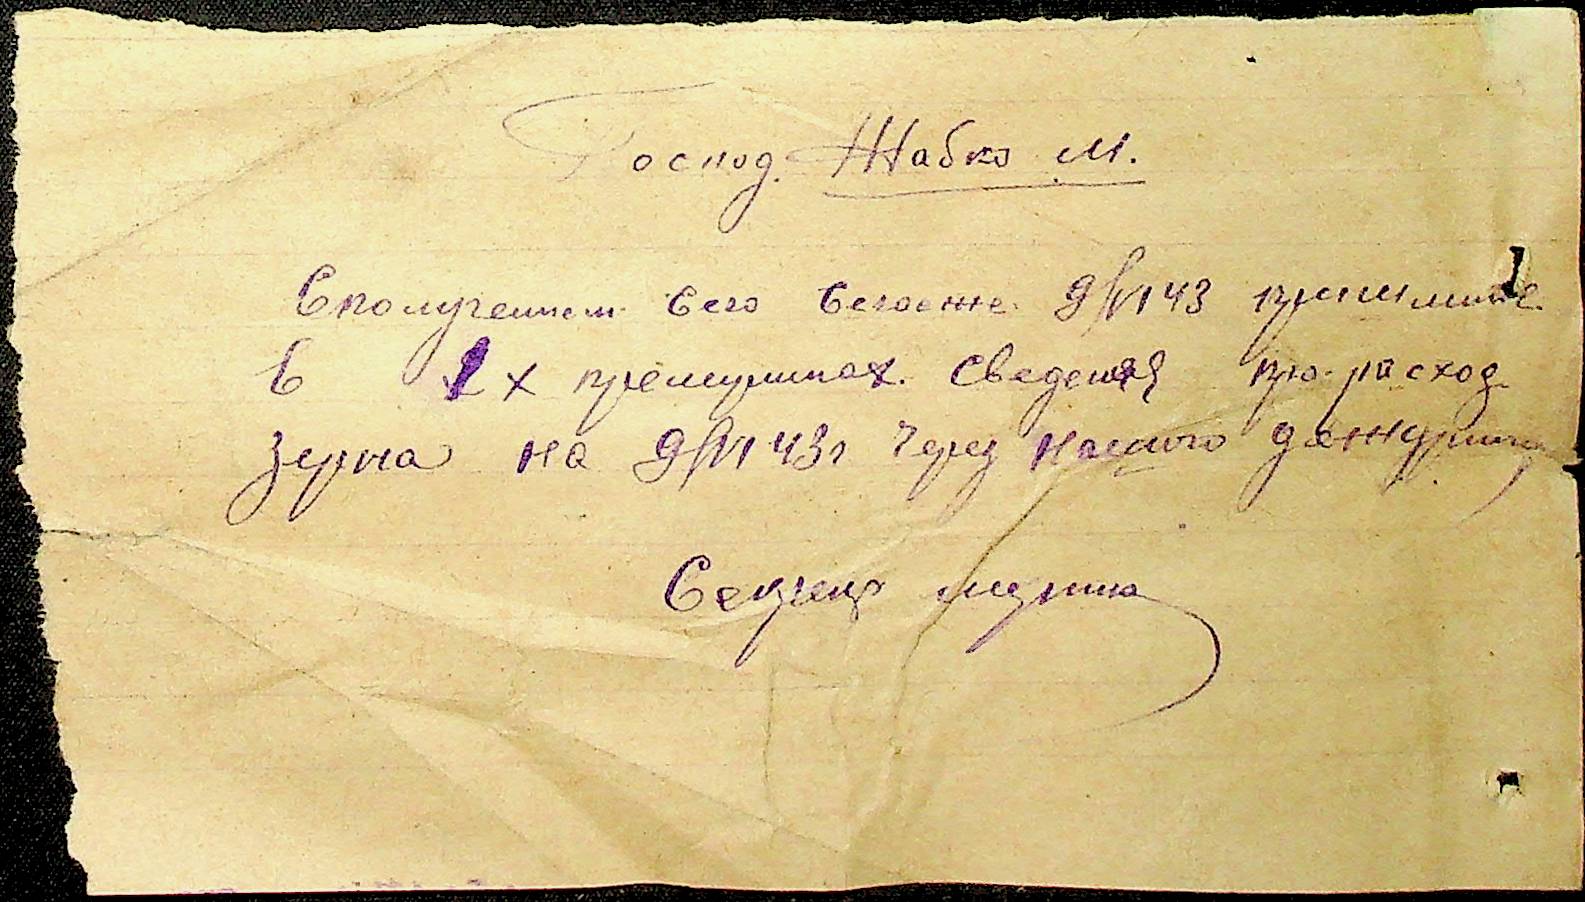 Господ. Жабко М.
Сполучением Сего Сегодне 9/VI 43 пришлите
в 2х екземплярах. Сведения про-расход
зерна на 9/VI 43г через нашего
Секрет